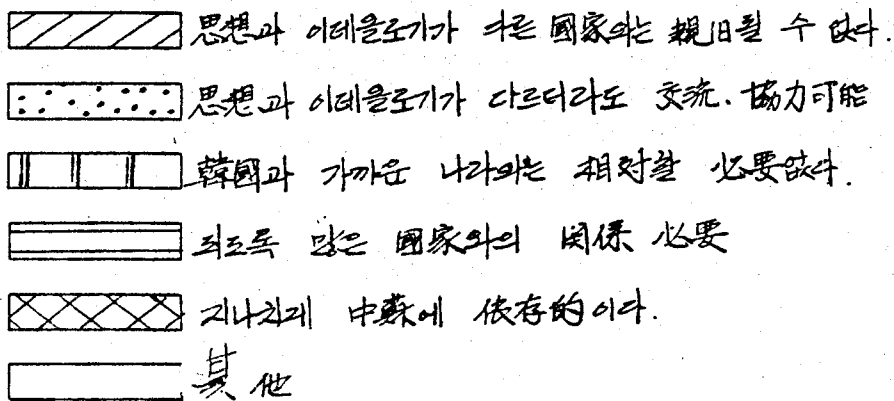 思想과 이데올로기가 다른 國家와는 親旧될 수 없다.
思想과 이데올로기가 다르더라도 交流.協力可能
韓國과 가까운 나라와는 相対할 必要없다.
되도록 많은 國家와의 関係 必要
지나치게 中蘇에 依存的이다.
其他